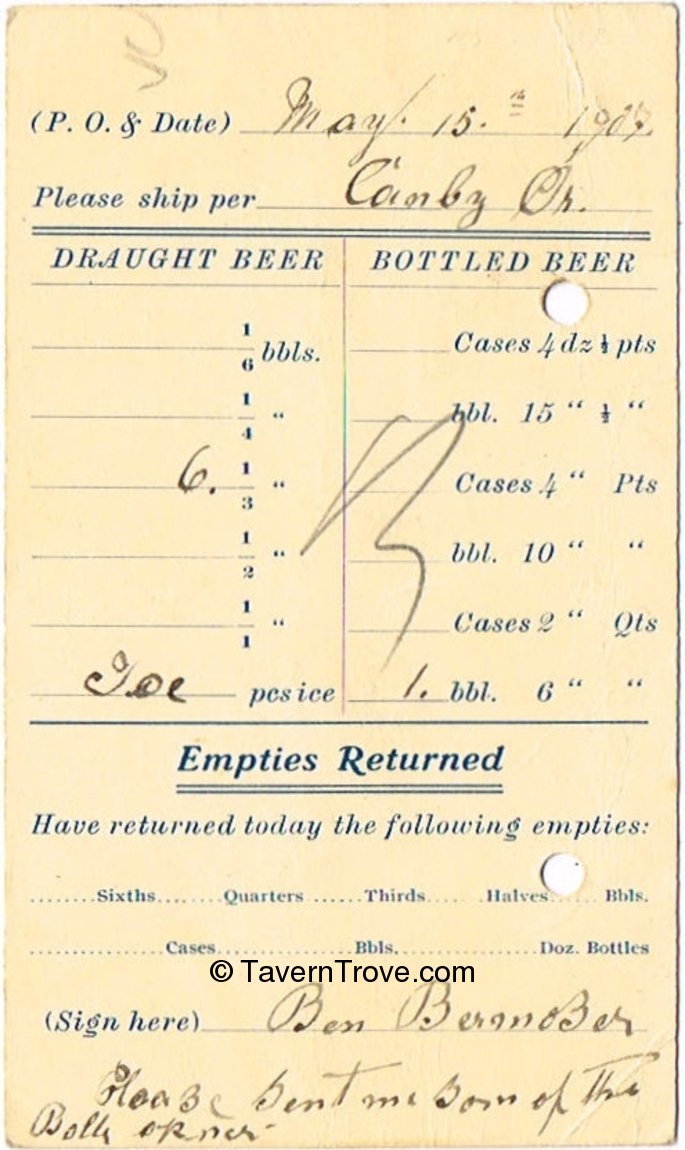 (P. O. & Date) May. 15. th 1907.
Please ship per Canby Or.
DRAUGHT BEER BOTTLED BEER
1/6 bbls. Cases 4 dz ½ pts
1/4 " bbl. 15 " ½ "
6. 1/3 " Cases 4 " Pts
1/2 " bbl. 10 " "
1/1 " Cases 2 " Qts
Ice pcs ice 1. bbl. 6 " "
Empties Returned
Have returned today the following empties:
........Sixths........Quarters ......Thirds..... .Halves....... Bbls.
.................Cases.................Bbls...................Doz. Bottles
© TavernTrove.com
(Sign here) Ben
Please sent me som of the
Bottle opner